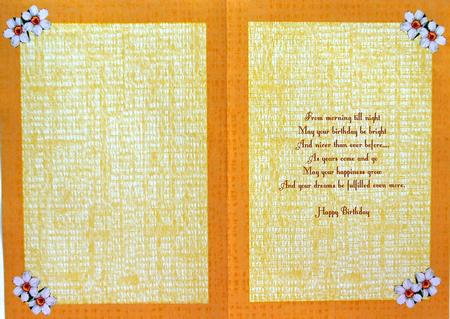 From morning till night
May your birthday be bright
And nicer than ever before....
As years come and go
May your happiness grow
And your dreams be fulfilled even more.
Happy Birthday